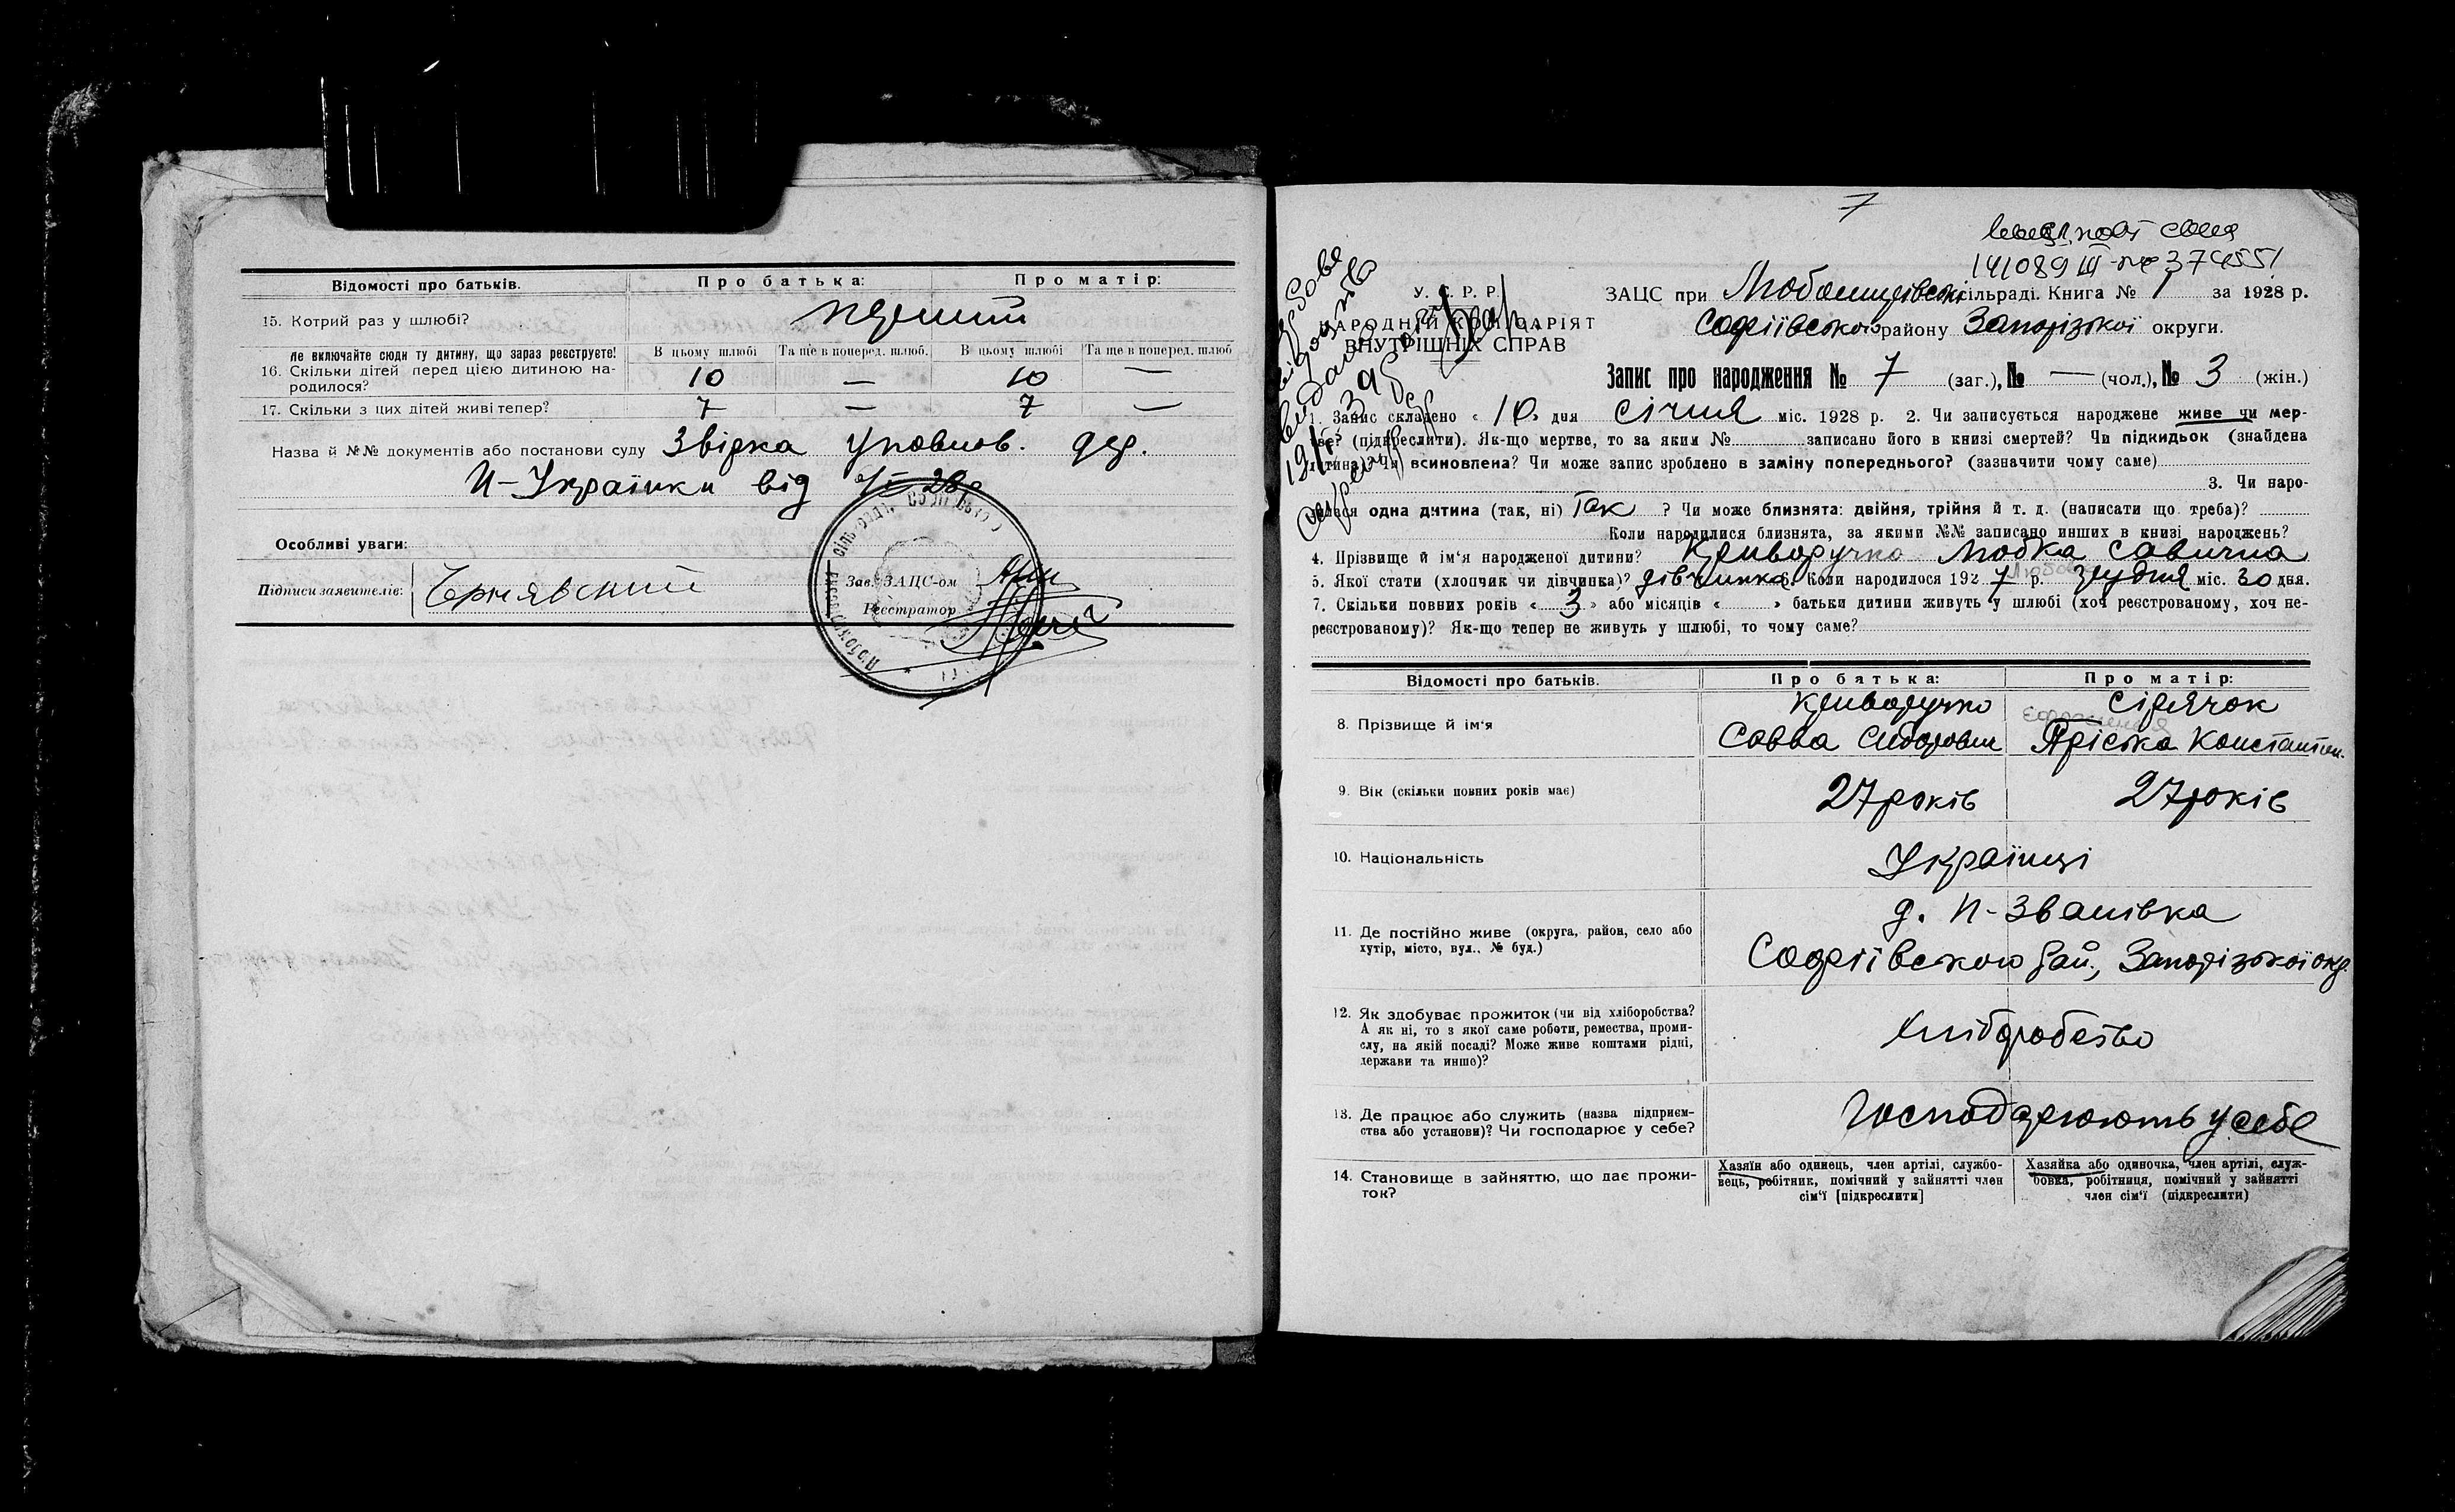 Відомості про батьків. Про батька: Про матір:
15. Котрий раз у шлюбі? перший
Не включайте сюди ту дитину, що зараз реєструєте! В цьому шлюбі Та ще в поперед. шлюб. В цьому шлюбі Та ще в поперед. шлюб
16. Скільки дітей перед цією дитиною на-
родилося? 10 — 10 —
17. Скільки з цих дітей живі тепер? 7 — 7 —
Назва й №№ документів або постанови суду Звірка уповнов. дер.
Н-Українки від
Особливі уваги:
Підписи заявителів: Чернявский
Зав. ЗАЦС-ом
Реєстратор
7
141089 III 374551
У. С. Р. Р.
НАРОДНІЙ КОМІСАРІЯТ
ВНУТРІШНІХ СПРАВ
ЗАЦС при Любомирівські сільраді. Книга № 1 за 1928 р.
Софіївського району Запорізької округи.
Запис про народження № 7 (заг.), № — (чол.), № 3 (жін.)
1. Запис складено « 10 » дня січня міс. 1928 р. 2. Чи записується народжене живе чи мер-
тве? (підкреслити). Як-що мертве, то за яким № записано його в книзі смертей? Чи підкидьок (знайдена
дитина)? Чи всиновлена? Чи може запис зроблено в заміну попереднього? (зазначити чому саме)
3. Чи наро-
дилася одна дитина (так, ні) Так ? Чи може близнята: двійня, трійня й т. д. (написати що треба)?
Коли народилися близнята, за якими №№ записано инших в книзі народжень?
4. Прізвище й ім‘я народженої дитини? Криворучко Любка Савична
5. Якої стати (хлопчик чи дівчинка)? дівчинка 6. Коли народилося 192 7 р. грудня міс. 30 дня.
7. Скільки повних років « 3 » або місяців « » батьки дитини живуть у шлюбі (хоч реєстрованому, хоч не-
реєстрованому)? Як-що тепер не живуть у шлюбі, то чому саме?
Відомості про батьків. Про батька: Про матір:
8. Прізвище й ім‘я Криворучко Сірячок
Савва Сидорович Пріська Константин.
9. Вік (скільки повних років має) 27 років 27 років
10. Національність Українці
11. Де постійно живе (округа, район, село або
хутір, місто, вул., № буд.) д. Н-Званівка
Софіївського рай., Запорізької окр.
12. Як здобуває прожиток (чи від хліборобства?
А як ні, то з якої саме роботи, ремества, проми-
слу, на якій посаді? Може живе коштами рідні,
держави та инше)? хліборобство
13. Де працює або служить (назва підприєм-
ства або установи)? Чи господарює у себе? Господарюють у себе
14. Становище в зайняттю, що дає прожи-
ток?
Хазяїн або одинець, член артілі, службо-
вець, робітник, помічний у зайнятті член
сім‘ї [підкреслити]
Хазяйка або одиночка, член артілі, служ-
бовка, робітниця, помічний у зайнятті
член сім‘ї (підкреслити)